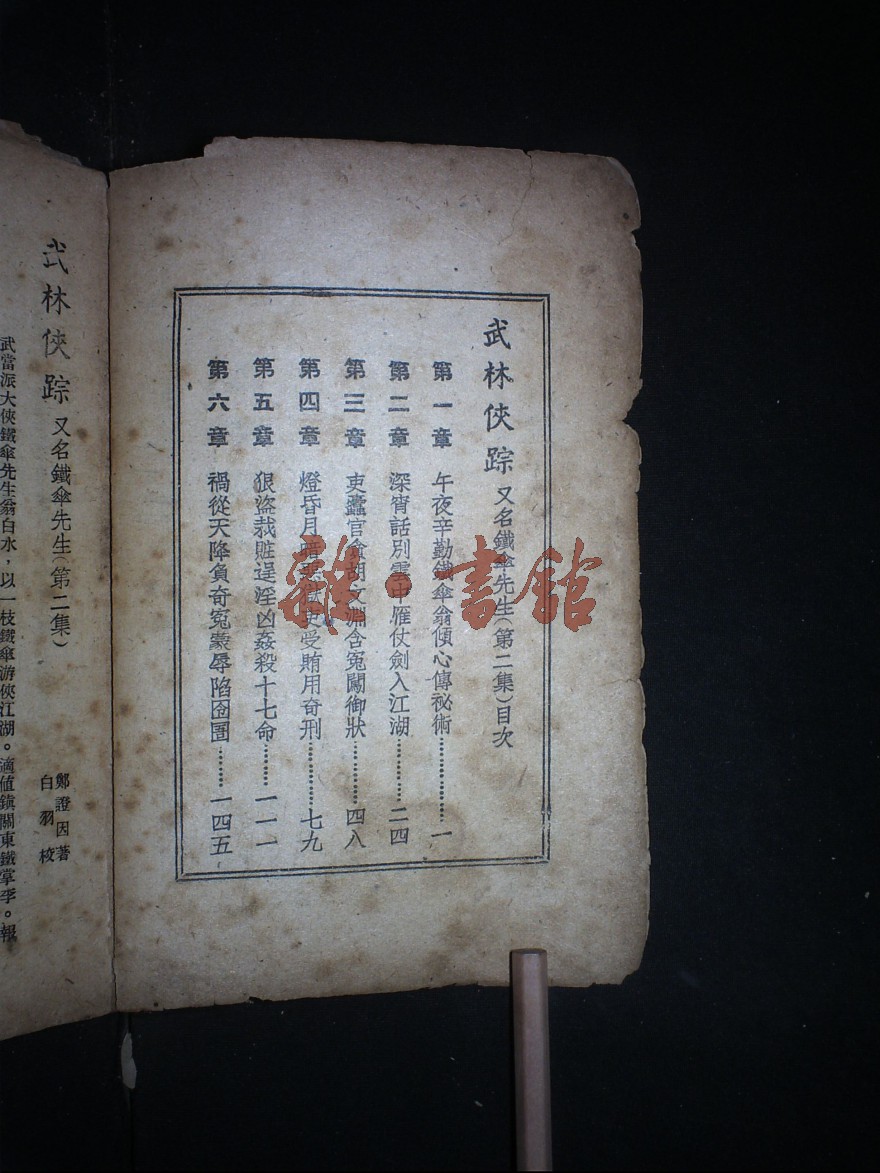 武林俠踪 又名鐵傘先生(第二集)目次
第一章 午夜辛勤鐵傘翁傾心傳祕術………………一
第二章 深宵話別雲中雁仗劍入江湖…………二四
第三章 吏蠹官貪胡文淵含冤闖御狀…………四八
第四章 燈昏月暗惡獄吏受賄用奇刑…………七九
第五章 狠盜栽贓逞淫凶姦殺十七命………一一一
第六章 禍從天降負奇冤蒙辱陷囹圄………一四五
武林俠踪 又名鐵傘先生(第二集)
鄭證因著
白羽校
武當派大俠鐵傘先生翁白水,以一枝鐵傘游俠江湖。適値鎭關東鐵掌李。報
雜·書館